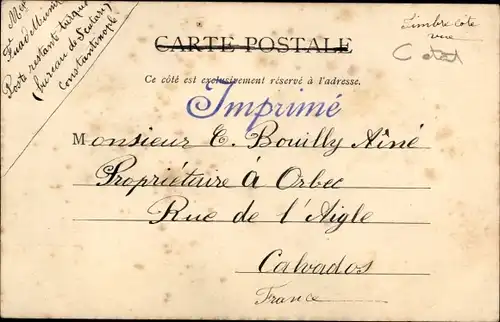 Poste restante turque
(bureau de Scutari)
Constantinople
Timbre côté
vue
CARTE POSTALE
Ce côté est exclusivement réservé à l'adresse.
Imprimé
Monsieur E. Bouilly Aîné
Propriétaire à Orbec
Rue de l'Aigle
Calvados
France